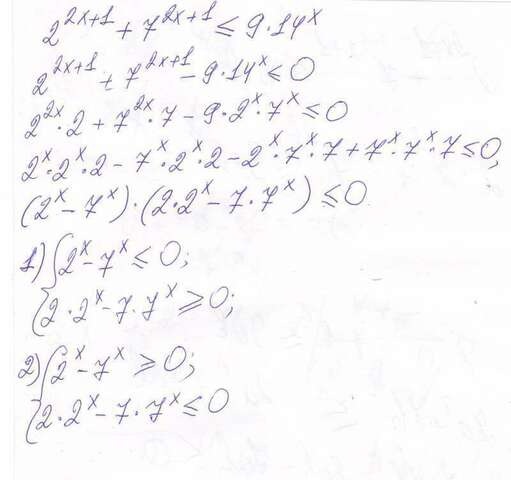 2^{2x+1} + 7^{2x+1} ≤ 9·14^x
2^{2x+1} + 7^{2x+1} - 9·14^x ≤ 0
2^{2x}·2 + 7^{2x}·7 - 9·2^x·7^x ≤ 0
2^x·2^x·2 - 7^x·2^x·2 - 2^x·7^x·7 + 7^x·7^x·7 ≤ 0,
(2^x - 7^x)·(2·2^x - 7·7^x) ≤ 0
1) { 2^x - 7^x ≤ 0;
2·2^x - 7·7^x ≥ 0;
2) { 2^x - 7^x ≥ 0;
2·2^x - 7·7^x ≤ 0